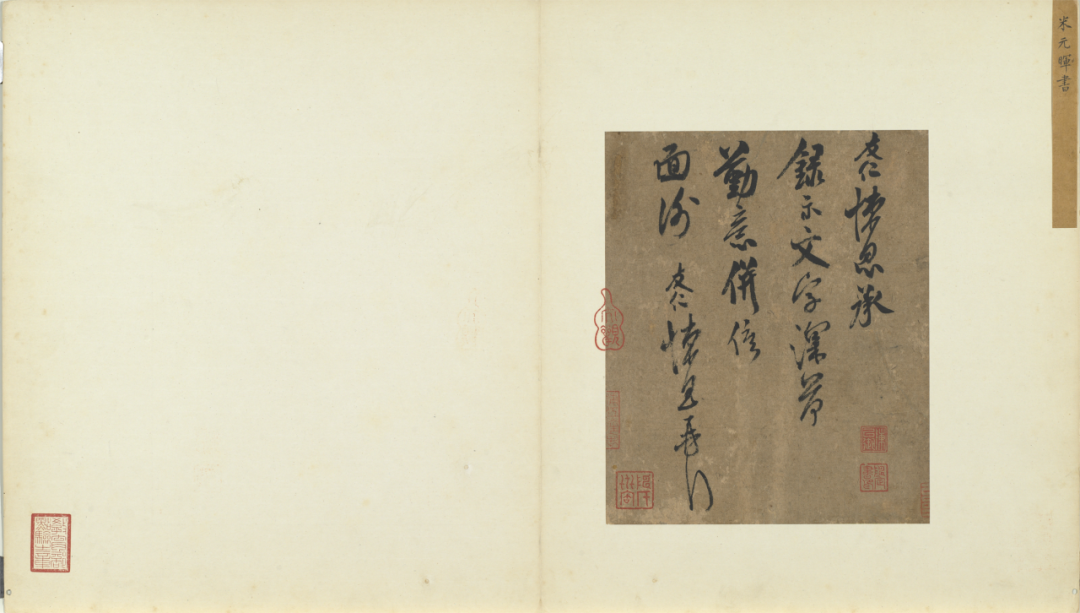 米元暉書
友仁惶恐承
錄示文字深荷
勤意併俟
面謝 友仁惶恐再拜